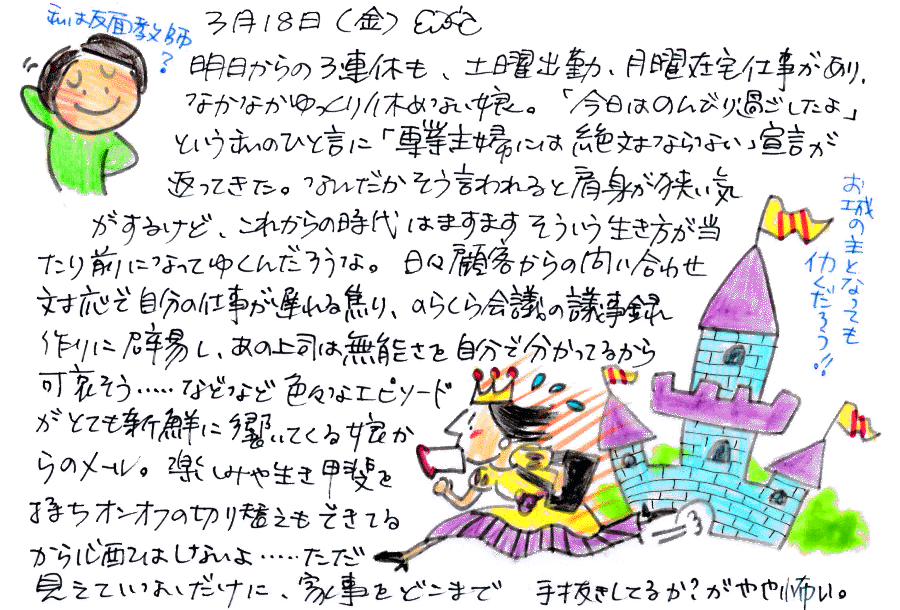 私は反面教師?
3月18日(金)
明日からの3連休も、土曜出勤、月曜在宅仕事があり、
なかなかゆっくり休めない娘。「今日はのんびり過ごしたよ」
という私のひと言に「専業主婦には絶対ならない」宣言が
返ってきた。なんだかそう言われると肩身が狭い気
がするけど、これからの時代はますますそういう生き方が当
たり前になってゆくんだろうな。日々顧客からの問い合わせ
対応で自分の仕事が遅れる焦り、のらくら会議の議事録
作りに辟易し、あの上司は無能さを自分で分かってるから
可哀そう……などなど色々なエピソード
がとても新鮮に響いてくる娘か
らのメール。楽しみや生き甲斐を
持ちオンオフの切り替えもできてる
から心配はしないよ……ただ
見えていないだけに、家事をどこまで 手抜きしてるか?がやや怖い。
お城の主となっても
働くだろう!!